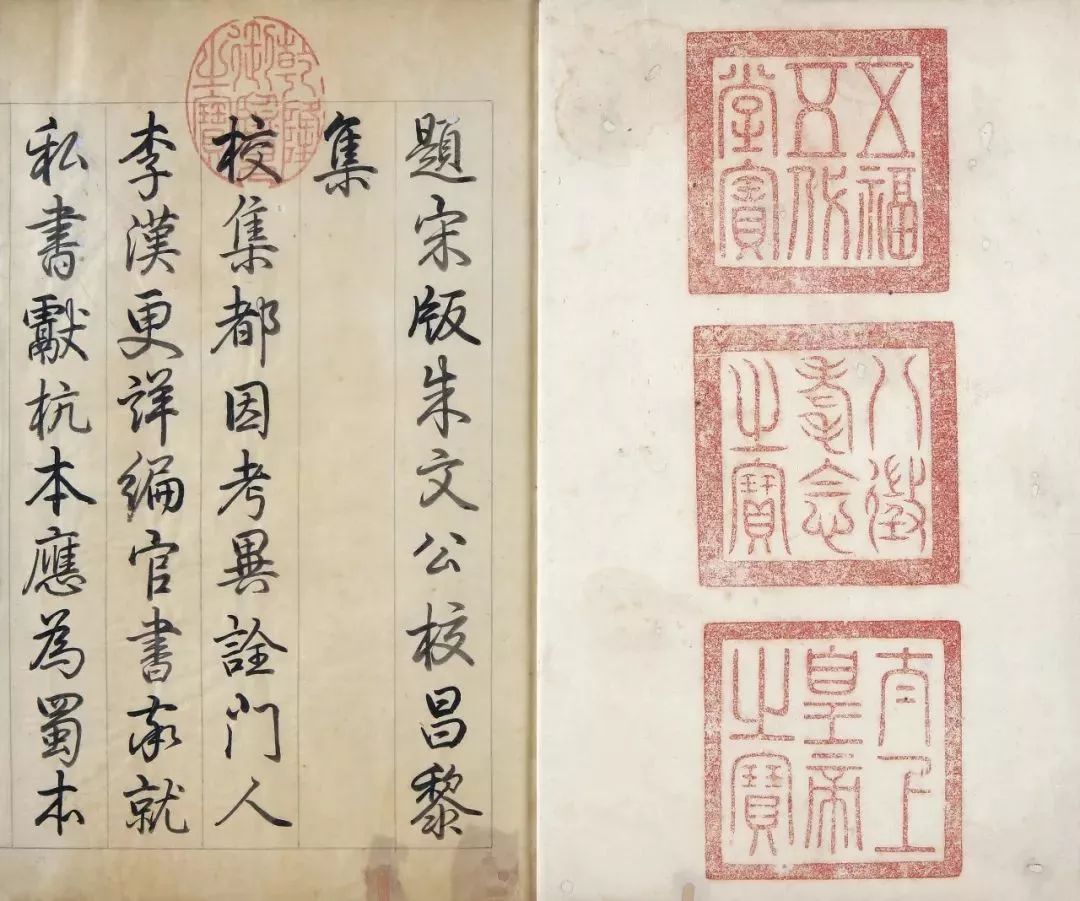 五福
五代
堂寶
八徵
耄念
之寶
太上
皇帝
之寶
題宋版朱文公校昌黎
集
乾隆
御覽
之寶
校集都因考異詮門人
李漢更詳編官書就
私書獻杭本應為蜀本